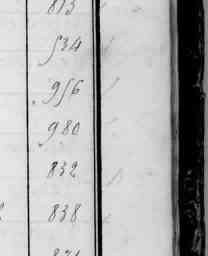 813
534
956
980
832
838